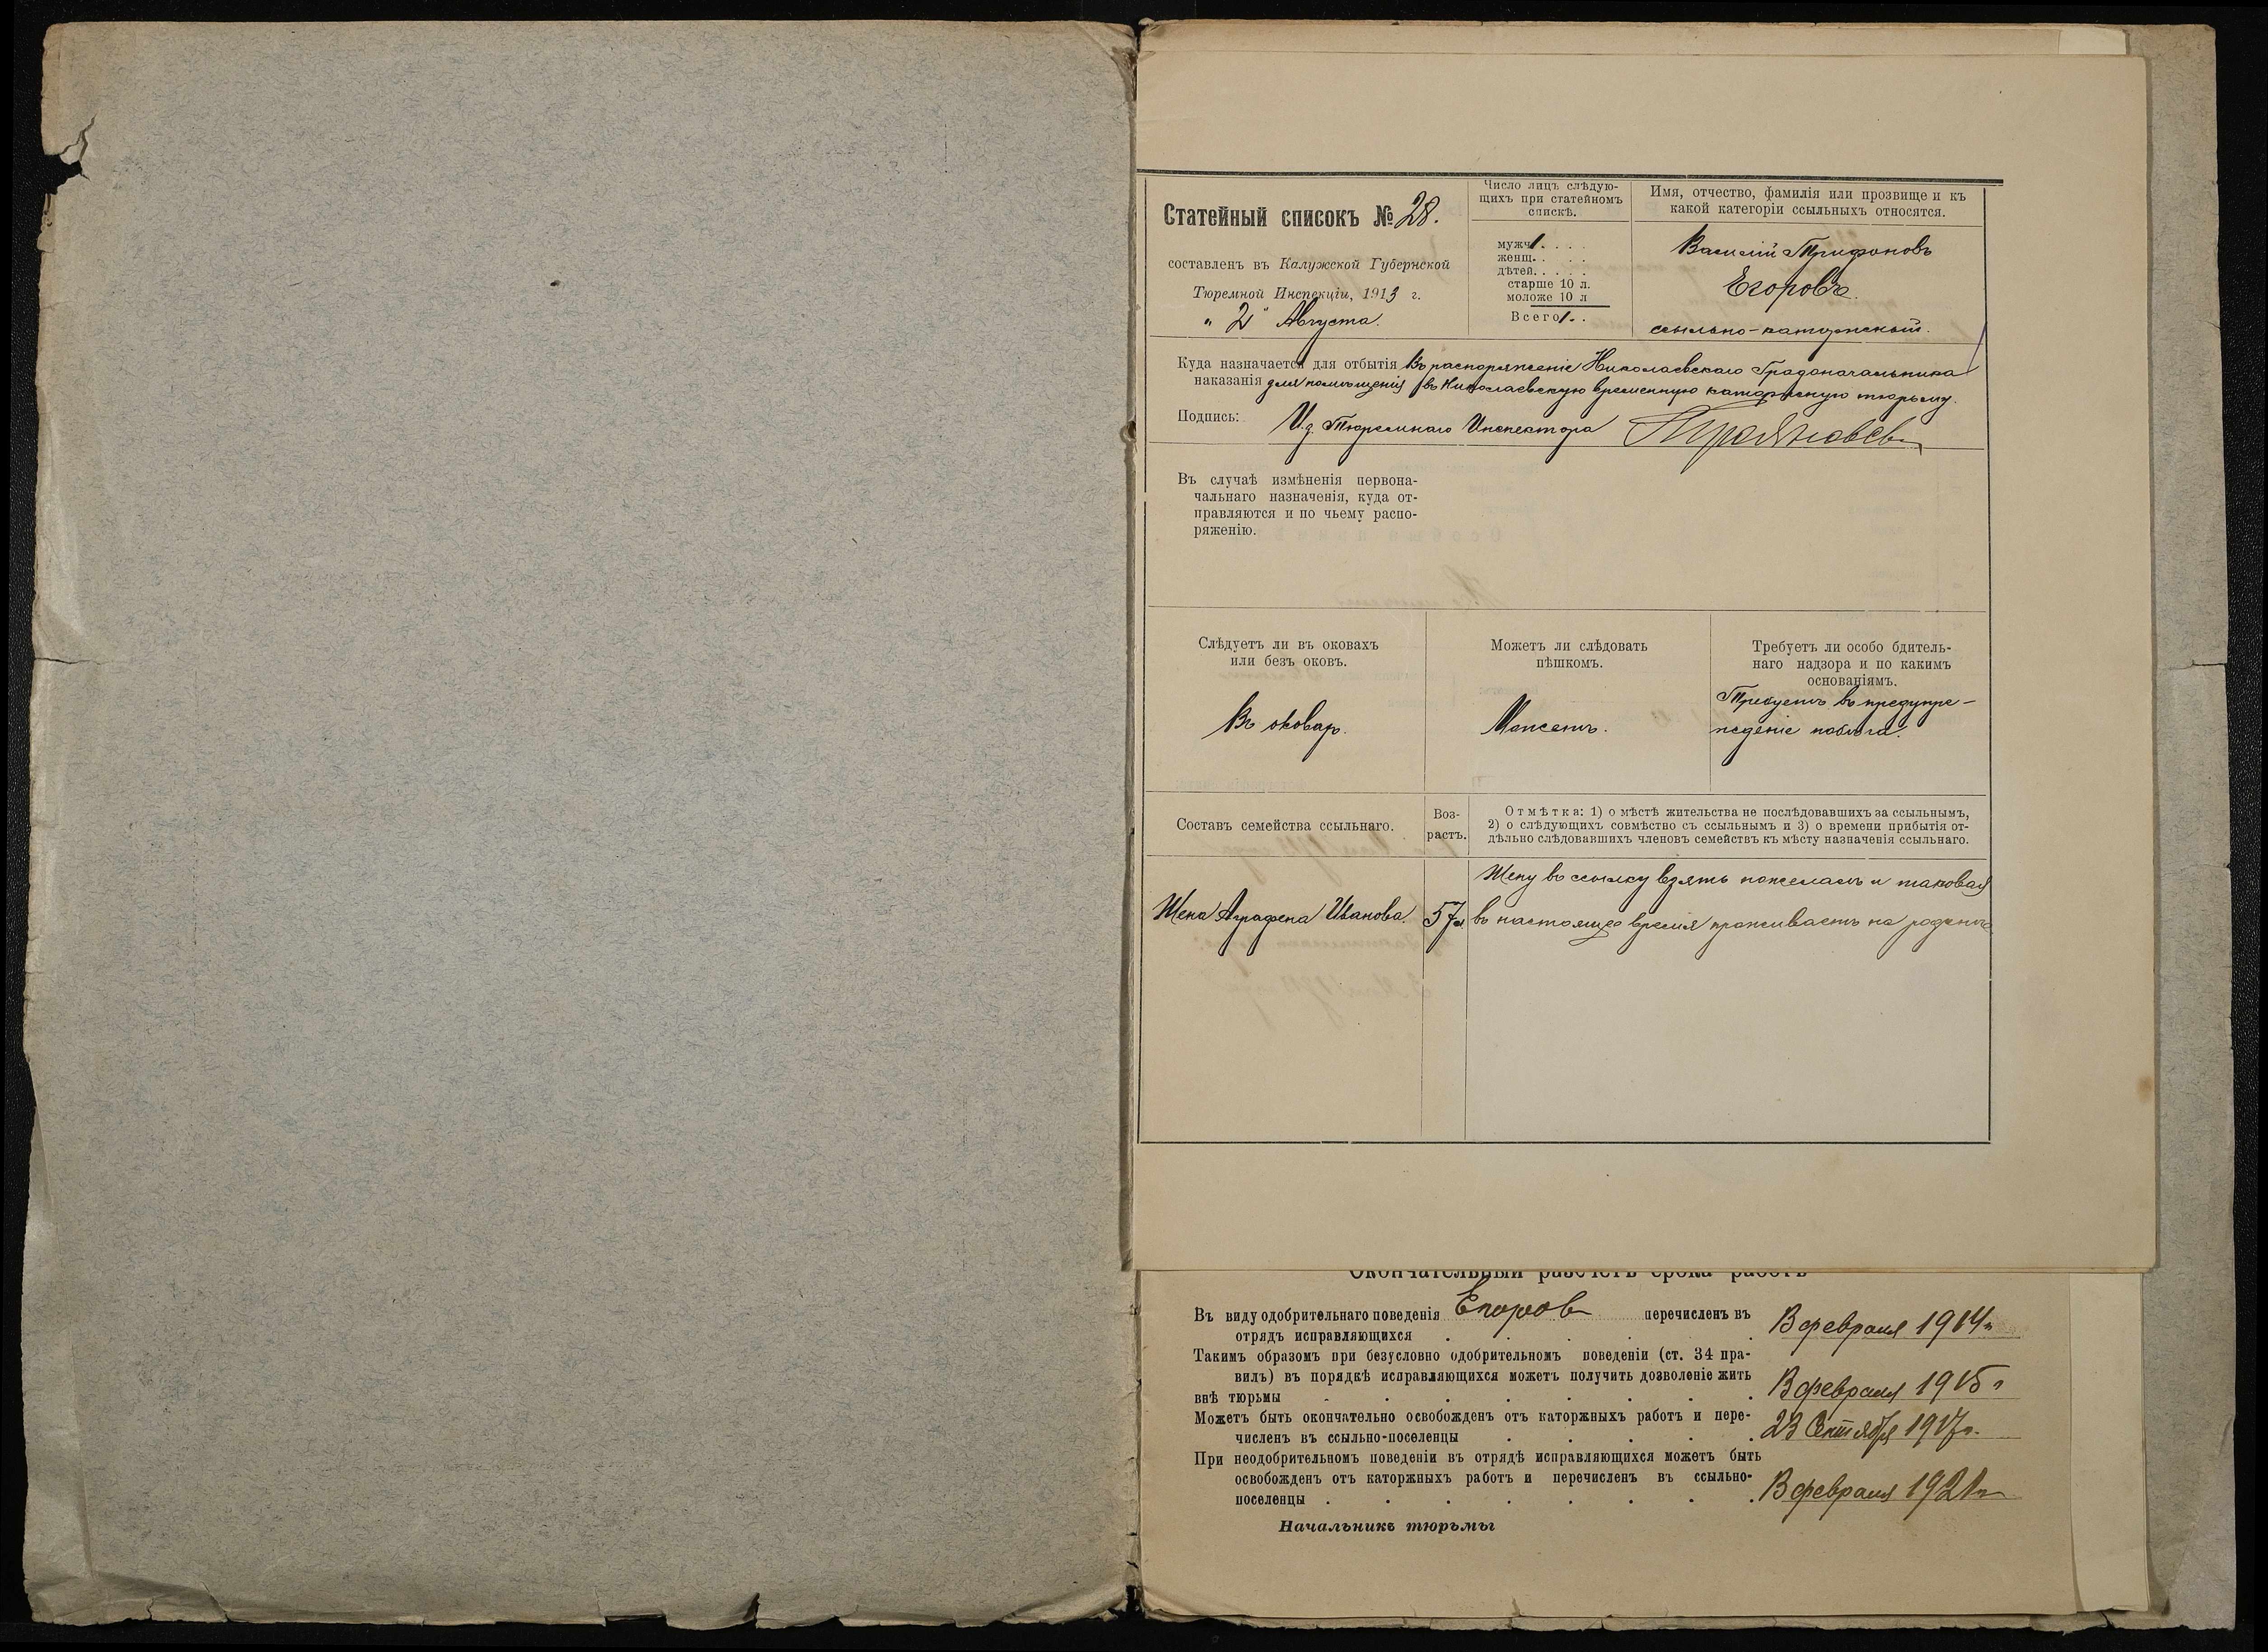 Статейный списокъ № 28.
составленъ въ Калужской Губернской
Тюремной Инспекціи, 1913 г.
„ 2 " Августа.
Число лицъ слѣдую-
щихъ при статейномъ
спискѣ.
мужч. 1 . . .
женщ. . . .
дѣтей. . . . .
старше 10 л.
моложе 10 л
Всего 1 . .
Имя, отчество, фамилія или прозвище и къ
какой категоріи ссыльныхъ относятся.
Василій Трифоновъ
Егоровъ.
ссыльно-каторжный.
Куда назначается для отбытія Въ распоряженіе Николаевскаго Градоначальника
наказанія для помѣщенія въ Николаевскую временную каторжную тюрьму.
Подпись: И.д. Тюремнаго Инспектора
Въ случаѣ измѣненія первона-
чальнаго назначенія, куда от-
правляются и по чьему распо-
ряженію.
Слѣдуетъ ли въ оковахъ
или безъ оковъ.
Въ оковах.
Можетъ ли слѣдовать
пѣшкомъ.
Можетъ.
Требуетъ ли особо бдитель-
наго надзора и по какимъ
основаніямъ.
Требуетъ въ предупре-
жденіе побѣга.
Составъ семейства ссыльнаго.
Воз-
растъ.
Отмѣтка: 1) о мѣстѣ жительства не послѣдовавшихъ за ссыльнымъ,
2) о слѣдующихъ совмѣстно съ ссыльнымъ и 3) о времени прибытія от-
дѣльно слѣдовавшихъ членовъ семействъ къ мѣсту назначенія ссыльнаго.
Жена Аграфена Иванова.
57 л
Жену въ ссылку взять пожелалъ и таковая
въ настоящее время проживаетъ на родинѣ
Окончательный разсчетъ срока работъ
Въ виду одобрительнаго поведенія Егоров перечисленъ въ
отрядъ исправляющихся . . . . . В февраля 1914 г.
Такимъ образомъ при безусловно одобрительномъ поведеніи (ст. 34 пра-
вилъ) въ порядкѣ исправляющихся можетъ получить дозволеніе жить
внѣ тюрьмы . . . . . . . . В февраля 1915 г
Можетъ быть окончательно освобожденъ отъ каторжныхъ работъ и пере-
численъ въ ссыльно-поселенцы . . . . . 23 Сентября 1917 г.
При неодобрительномъ поведеніи въ отрядѣ исправляющихся можетъ быть
освобожденъ отъ каторжныхъ работъ и перечисленъ въ ссыльно-
поселенцы . . . . . . . . В февраля 1921 г
Начальникъ тюрьмы